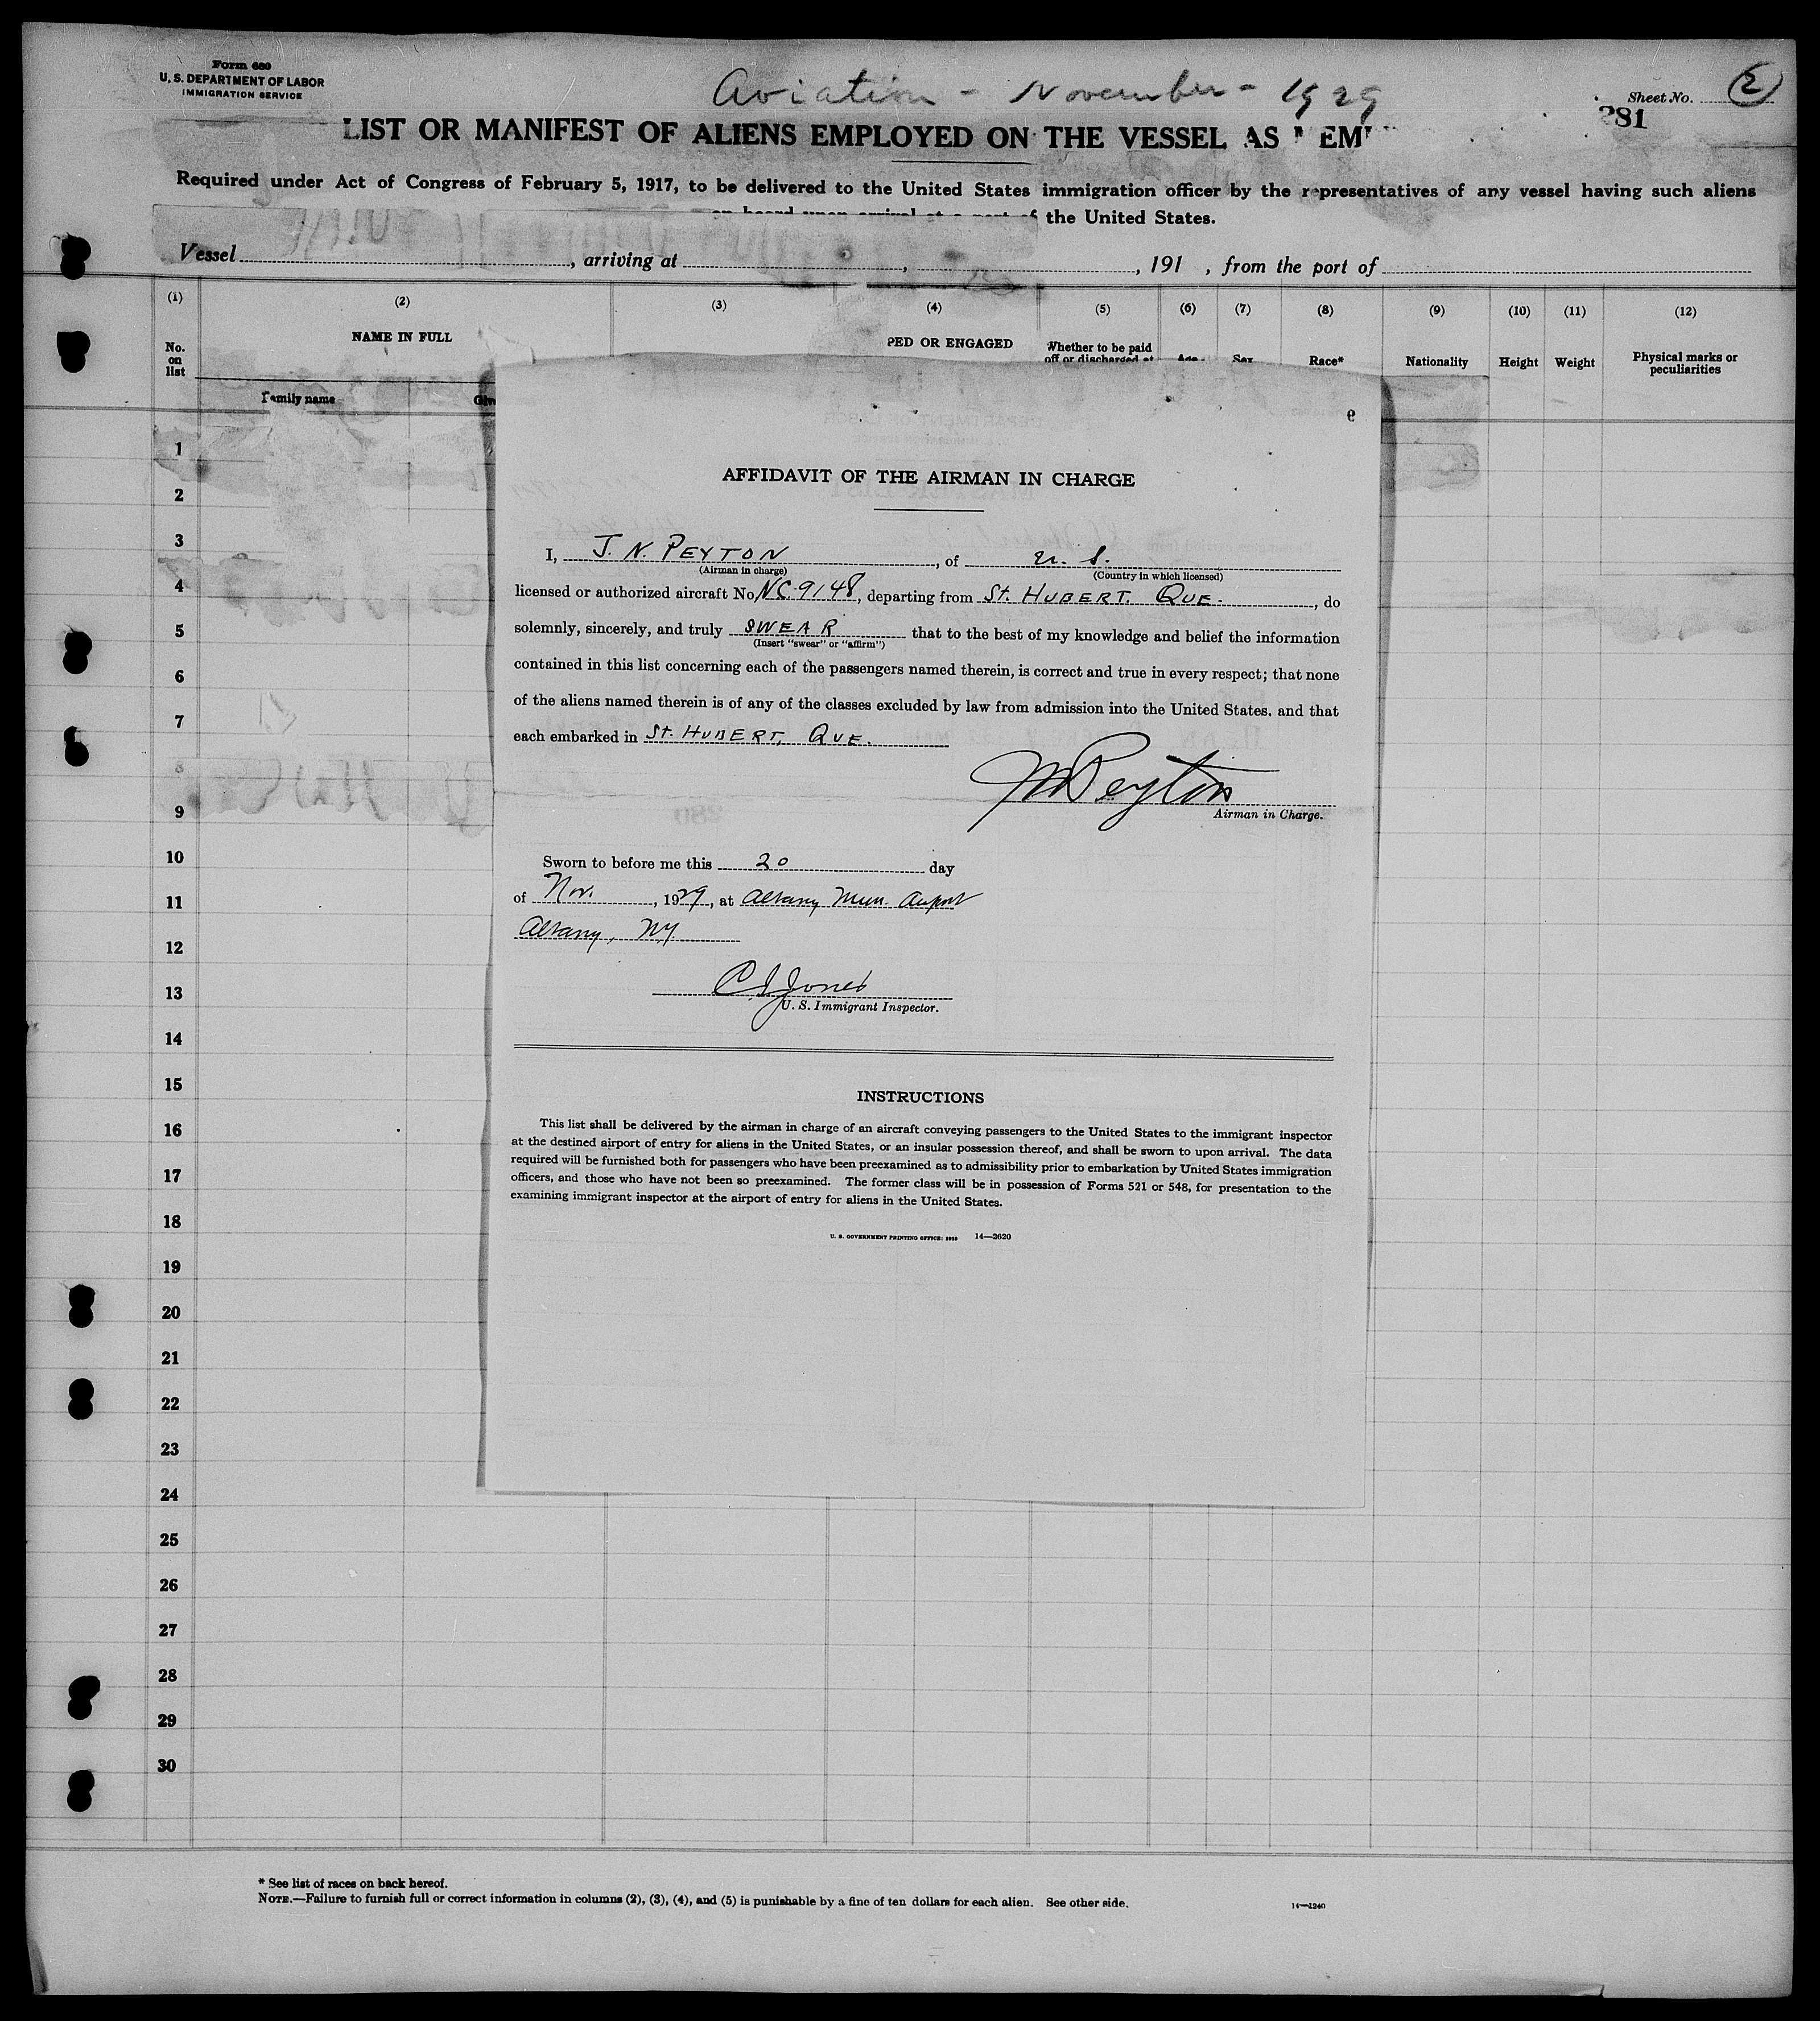 Form 689
U. S. DEPARTMENT OF LABOR
IMMIGRATION SERVICE
Aviation - November - 1929
Sheet No. 2
281
LIST OR MANIFEST OF ALIENS EMPLOYED ON THE VESSEL AS EM
Required under Act of Congress of February 5, 1917, to be delivered to the United States immigration officer by the representatives of any vessel having such aliens
on board upon arrival at a port of the United States.
Vessel , arriving at , , 191 , from the port of
(1) (2) (3) (4) (5) (6) (7) (8) (9) (10) (11) (12)
No. on list
NAME IN FULL
PED OR ENGAGED
Whether to be paid off or discharged at
Age
Sex
Race*
Nationality
Height
Weight
Physical marks or peculiarities
Family name
Giv
AFFIDAVIT OF THE AIRMAN IN CHARGE
I, J. N. PEYTON, of U. S.
(Airman in charge) (Country in which licensed)
licensed or authorized aircraft No. NC-9148, departing from St. HUBERT. QUE., do
solemnly, sincerely, and truly SWEAR that to the best of my knowledge and belief the information
(Insert "swear" or "affirm")
contained in this list concerning each of the passengers named therein, is correct and true in every respect; that none
of the aliens named therein is of any of the classes excluded by law from admission into the United States, and that
each embarked in St. HUBERT, QUE.
JNPeyton
Airman in Charge.
Sworn to before me this 20 day
of Nov., 1929, at Albany Mun. Airport
Albany, NY.
C I Jones
U. S. Immigrant Inspector.
INSTRUCTIONS
This list shall be delivered by the airman in charge of an aircraft conveying passengers to the United States to the immigrant inspector
at the destined airport of entry for aliens in the United States, or an insular possession thereof, and shall be sworn to upon arrival. The data
required will be furnished both for passengers who have been preexamined as to admissibility prior to embarkation by United States immigration
officers, and those who have not been so preexamined. The former class will be in possession of Forms 521 or 548, for presentation to the
examining immigrant inspector at the airport of entry for aliens in the United States.
U. S. GOVERNMENT PRINTING OFFICE: 14—2620
1
2
3
4
5
6
7
8
9
10
11
12
13
14
15
16
17
18
19
20
21
22
23
24
25
26
27
28
29
30
* See list of races on back hereof.
NOTE.—Failure to furnish full or correct information in columns (2), (3), (4), and (5) is punishable by a fine of ten dollars for each alien. See other side.
14—1240